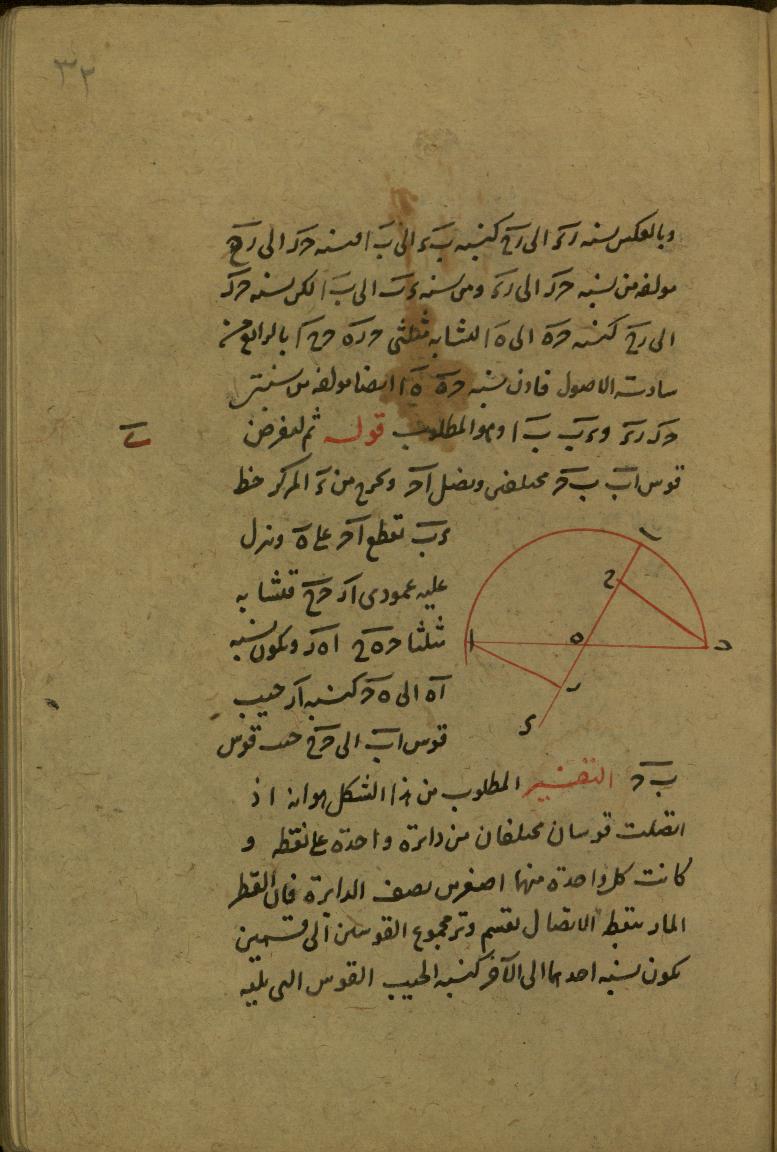 ٣٢
وبالعكس نسبة زء الى زح كنسبة ب ء الى ب ا فنسبة حر الى رح
مولفة من نسبة حر الى رء ومن نسبة ء ب الى ب ا لكن نسبة حر
الى رح كنسبة حه الى ه ا لتشابه مثلثى حره حح ا بالرابع من
سادسة الاصول فاذن نسبة حه ه ا ايضا مولفة من نسبتى
حر رء و ء ب ب ا وهو المطلوب قوله ثم لنفرض
قوس اب ب ح مختلفى ونصل اح ونخرج من ء المركز خط
ء ب تقطع اح على ه وننزل
عليه عمودى ار حح فتشابه
مثلثا حه ح اه ر وتكون نسبة
اه الى ه ح كنسبة ار جيب
قوس اب الى حح جيب قوس
ب ح التفسير المطلوب من هذا الشكل هو انه اذ
اتصلت قوسان مختلفان من دائرة واحدة على نقطة و
كانت كل واحدة منهما اصغر من نصف الدايرة فان القطر
المار بنقطة الاتصال يقسم وتر مجموع القوسين الى قسمين
يكون نسبة احدهما الى الآخر كنسبة الجيب القوس التى يليه
ب
ح
ه
ح
ا
ر
ء